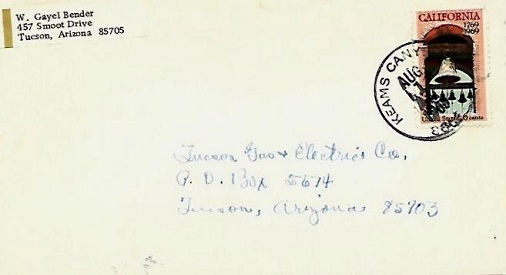 W. Gayel Bender
457 Smoot Drive
Tucson, Arizona 85705
CALIFORNIA
1769
1969
KEAMS CANY
AUG
Tucson Gas & Electric Co,
P. O. Box 5614
Tucson, Arizona 85703